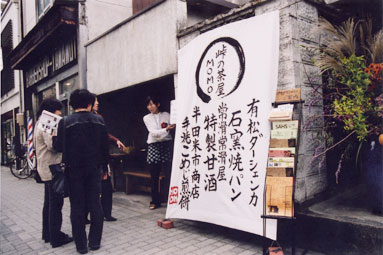 峠の茶屋
MOMO
有松ダーシェンカ
石窯焼パン
常滑常滑屋
特製甘酒
半田米市商店
手焼 煎餅